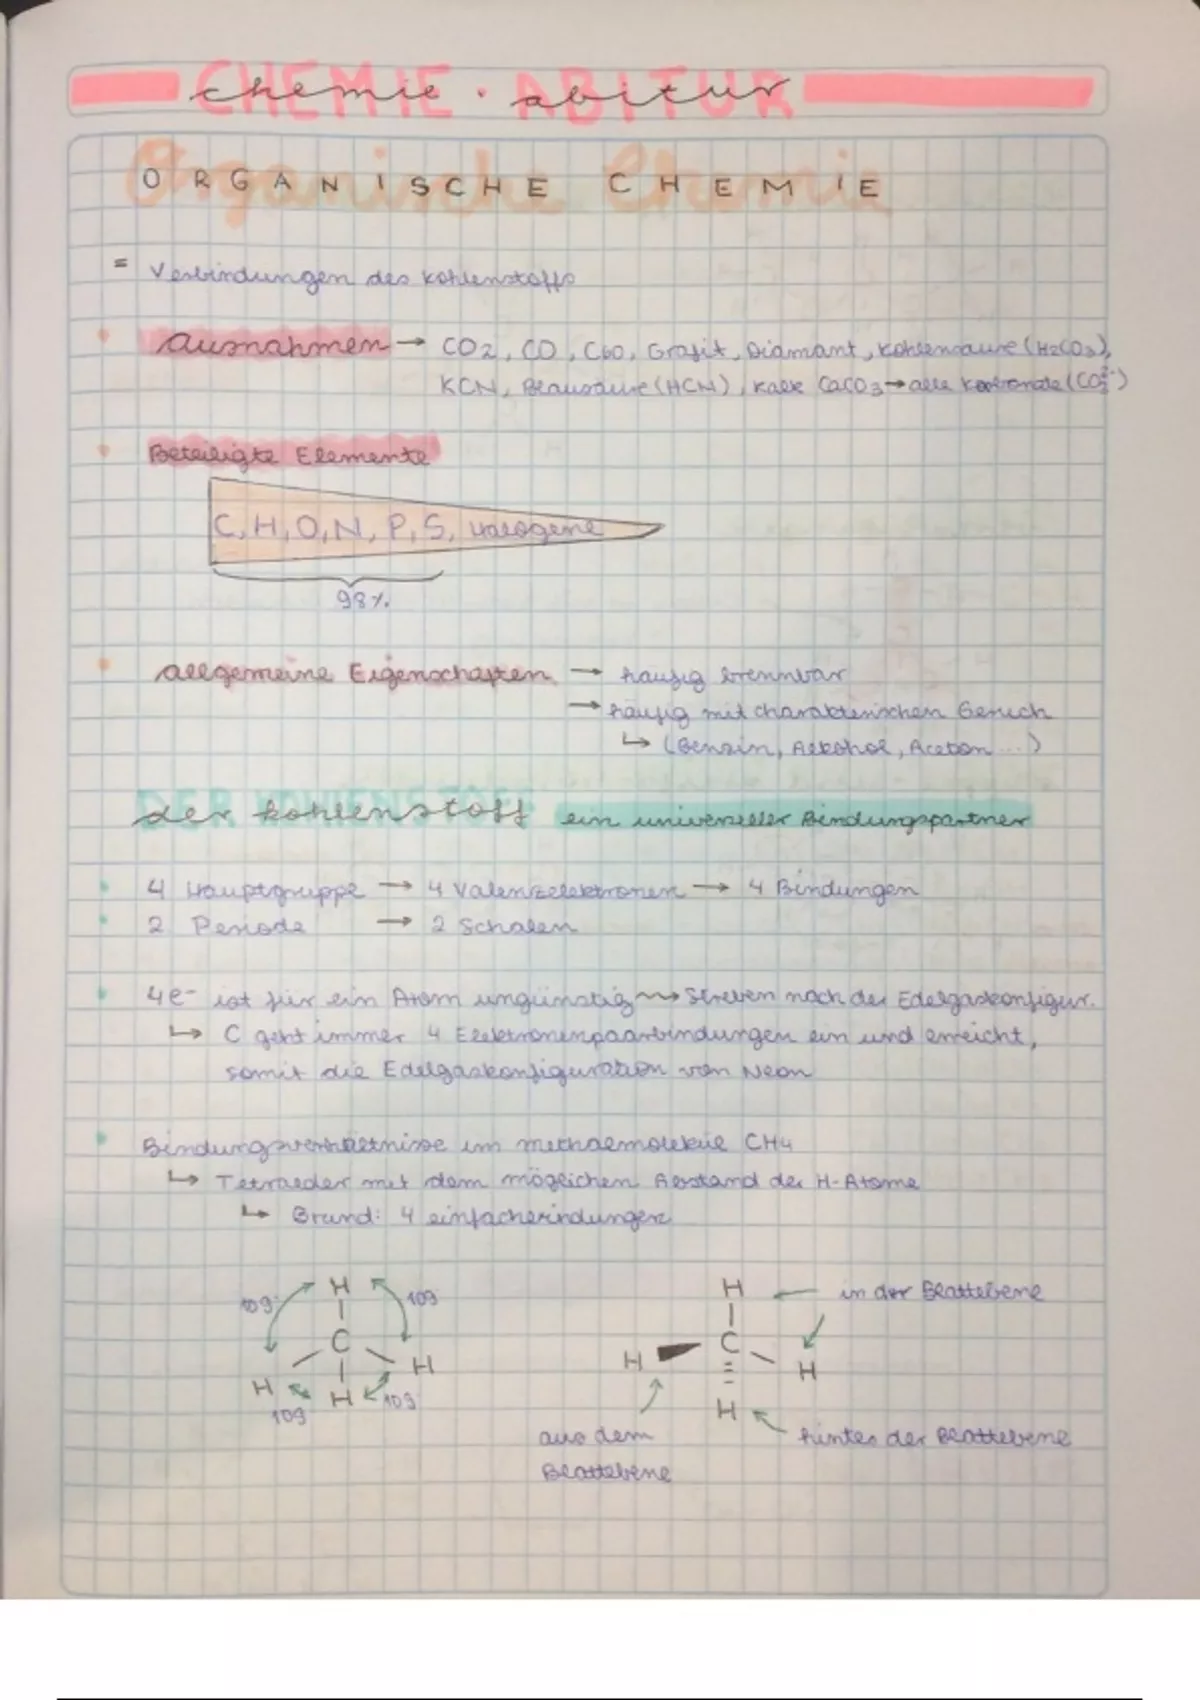 CHEMIE ABITUR
chemie · abitur
Organische Chemie
ORGANISCHE CHEMIE
= Verbindungen des Kohlenstoffs
Ausnahmen → CO2, CO, C60, Grafit, Diamant, Kohlensäure (H2CO3),
KCN, Blausäure (HCN), Kalk CaCO3 → alle Karbonate (CO3²⁻)
Beteiligte Elemente
C, H, O, N, P, S, Halogene
98%
allgemeine Eigenschaften → häufig brennbar
→ häufig mit charakterischen Geruch
↳ (Benzin, Alkohol, Aceton ...)
DER KOHLENSTOFF
der kohlenstoff ein universeller Bindungspartner
4 Hauptgruppe → 4 Valenzelektronen → 4 Bindungen
2 Periode → 2 Schalen
4e⁻ ist für ein Atom ungünstig ⇝ Streben nach der Edelgaskonfigur.
↳ C geht immer 4 Elektronenpaarbindungen ein und erreicht,
somit die Edelgaskonfiguration von Neon
Bindungsverhältnisse im methaemolekül CH4
↳ Tetraeder mit dem möglichen Abstand der H-Atome
↳ Grund: 4 einfachbindungen
109° H 109
C
H H H
109 109°
H ← in der Blattebene
C
H H
H
aus dem
Blattebene
hinter der Blattebene